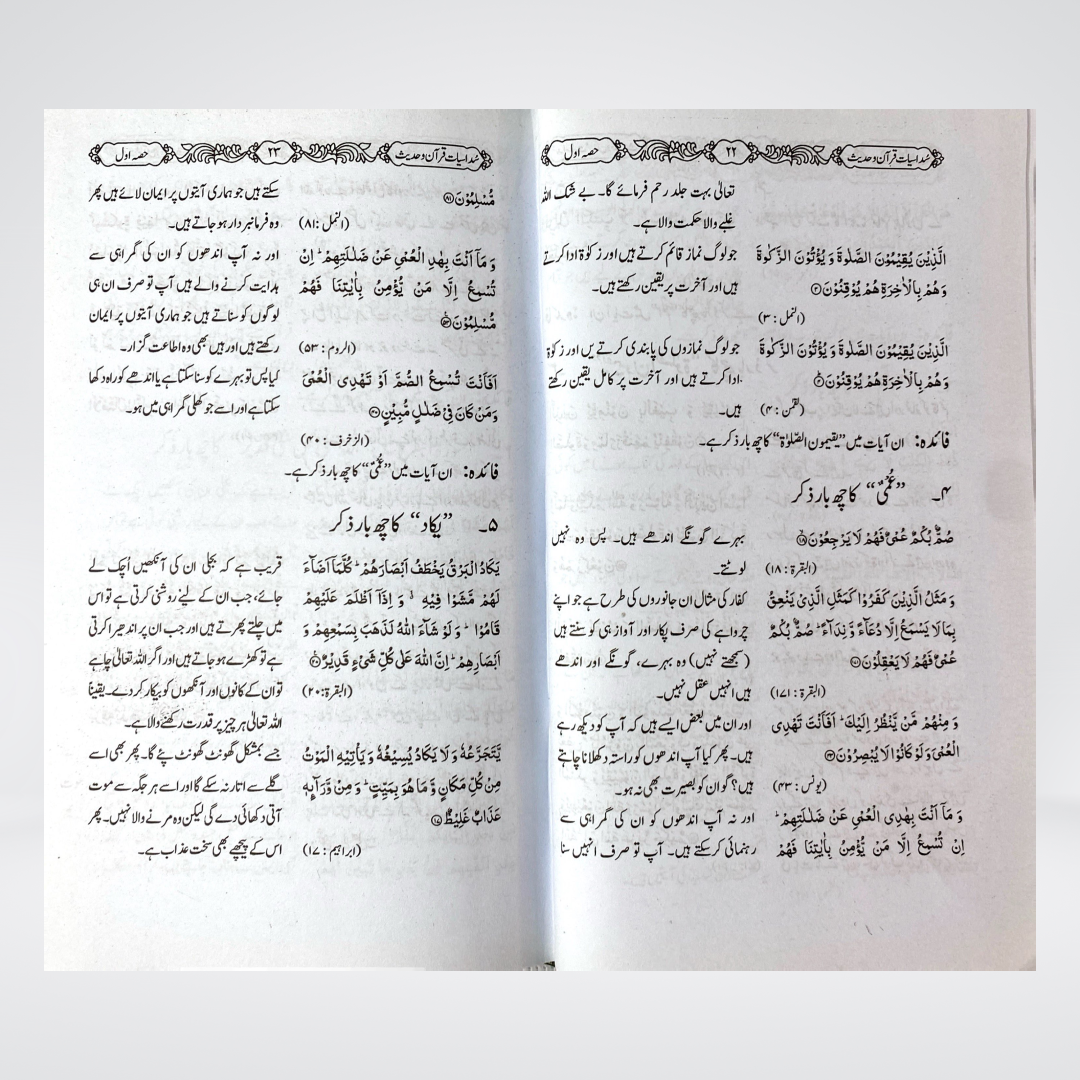 سُداسیات قرآن و حدیث ۲۲ حصہ اول
تعالیٰ بہت جلد رحم فرمائے گا۔ بے شک اللہ
غلبے والا حکمت والا ہے۔
الَّذِیْنَ یُقِیْمُوْنَ الصَّلٰوةَ وَ یُؤْتُوْنَ الزَّكٰوةَ
وَهُمْ بِالْاٰخِرَةِ هُمْ یُوْقِنُوْنَ۝۳
(النمل : ۳)
جو لوگ نماز قائم کرتے ہیں اور زکوٰۃ ادا کرتے
ہیں اور آخرت پر یقین رکھتے ہیں۔
الَّذِیْنَ یُقِیْمُوْنَ الصَّلٰوةَ وَ یُؤْتُوْنَ الزَّكٰوةَ
وَهُمْ بِالْاٰخِرَةِ هُمْ یُوْقِنُوْنَ۝۴
(لقمن : ۴)
جو لوگ نمازوں کی پابندی کرتے یں اور زکوٰۃ
ادا کرتے ہیں اور آخرت پر کامل یقین رکھتے
ہیں۔
فائدہ: ان آیات میں ”یقیمون الصّلوٰۃ“ کا چھ بار ذکر ہے۔
۴۔ ”عُمْیٌ“ کا چھ بار ذکر
صُمٌّۢ بُكْمٌ عُمْیٌ فَهُمْ لَا یَرْجِعُوْنَ۝۱۸
(البقرة : ۱۸)
بہرے گونگے اندھے ہیں۔ پس وہ نہیں
لوٹتے۔
وَ مَثَلُ الَّذِیْنَ كَفَرُوْا كَمَثَلِ الَّذِیْ یَنْعِقُ
بِمَا لَا یَسْمَعُ اِلَّا دُعَآءً وَّ نِدَآءً ؕ صُمٌّۢ بُكْمٌ
عُمْیٌ فَهُمْ لَا یَعْقِلُوْنَ۝۱۷۱
(البقرة : ۱۷۱)
کفار کی مثال ان جانوروں کی طرح ہے جو اپنے
چرواہے کی صرف پکار اور آواز ہی کو سنتے ہیں
(سمجھتے نہیں) وہ بہرے، گونگے اور اندھے
ہیں انہیں عقل نہیں۔
وَ مِنْهُمْ مَّنْ یَّنْظُرُ اِلَیْكَ ؕ اَفَاَنْتَ تَهْدِی
الْعُمْیَ وَ لَوْ كَانُوْا لَا یُبْصِرُوْنَ۝۴۳
(یونس : ۴۳)
اور ان میں بعض ایسے ہیں کہ آپ کو دیکھ رہے
ہیں۔ پھر کیا آپ اندھوں کو راستہ دکھلانا چاہتے
ہیں؟ گو ان کو بصیرت بھی نہ ہو۔
وَ مَاۤ اَنْتَ بِهٰدِی الْعُمْیِ عَنْ ضَلٰلَتِهِمْ ؕ
اِنْ تُسْمِعُ اِلَّا مَنْ یُّؤْمِنُ بِاٰیٰتِنَا فَهُمْ
اور نہ آپ اندھوں کو ان کی گمراہی سے
رہنمائی کر سکتے ہیں۔ آپ تو صرف انہیں سنا
سُداسیات قرآن و حدیث ۲۳ حصہ اول
مُّسْلِمُوْنَ۝۸۱
(النمل : ۸۱)
سکتے ہیں جو ہماری آیتوں پر ایمان لائے ہیں پھر
وہ فرمانبردار ہو جاتے ہیں۔
وَ مَاۤ اَنْتَ بِهٰدِ الْعُمْیِ عَنْ ضَلٰلَتِهِمْ ؕ اِنْ
تُسْمِعُ اِلَّا مَنْ یُّؤْمِنُ بِاٰیٰتِنَا فَهُمْ
مُّسْلِمُوْنَ۝۵۳
(الروم : ۵۳)
اور نہ آپ اندھوں کو ان کی گمراہی سے
ہدایت کرنے والے ہیں آپ تو صرف ان ہی
لوگوں کو سناتے ہیں جو ہماری آیتوں پر ایمان
رکھتے ہیں اور ہیں بھی وہ اطاعت گزار۔
اَفَاَنْتَ تُسْمِعُ الصُّمَّ اَوْ تَهْدِی الْعُمْیَ
وَ مَنْ كَانَ فِیْ ضَلٰلٍ مُّبِیْنٍ۝۴۰
(الزخرف : ۴۰)
کیا پس تو بہرے کو سنا سکتا ہے یا اندھے کو راہ دکھا
سکتا ہے اور اسے جو کھلی گمراہی میں ہو۔
فائدہ: ان آیات میں ”عُمْیٌ“ کا چھ بار ذکر ہے۔
۵۔ ”یکاد“ کا چھ بار ذکر
یَكَادُ الْبَرْقُ یَخْطَفُ اَبْصَارَهُمْ ؕ كُلَّمَاۤ اَضَآءَ
لَهُمْ مَّشَوْا فِیْهِ ۙۗ وَ اِذَاۤ اَظْلَمَ عَلَیْهِمْ
قَامُوْا ؕ وَ لَوْ شَآءَ اللّٰهُ لَذَهَبَ بِسَمْعِهِمْ وَ
اَبْصَارِهِمْ ؕ اِنَّ اللّٰهَ عَلٰى كُلِّ شَیْءٍ قَدِیْرٌ۝۲۰
(البقرة : ۲۰)
قریب ہے کہ بجلی ان کی آنکھیں اُچک لے
جائے، جب ان کے لیے روشنی کرتی ہے تو اس
میں چلتے پھرتے ہیں اور جب ان پر اندھیرا کرتی
ہے تو کھڑے ہو جاتے ہیں اور اگر اللہ تعالیٰ چاہے
تو ان کے کانوں اور آنکھوں کو بیکار کر دے۔ یقیناً
اللہ تعالیٰ ہر چیز پر قدرت رکھنے والا ہے۔
یَّتَجَرَّعُهٗ وَ لَا یَكَادُ یُسِیْغُهٗ وَ یَاْتِیْهِ الْمَوْتُ
مِنْ كُلِّ مَكَانٍ وَّ مَا هُوَ بِمَیِّتٍ ؕ وَ مِنْ وَّرَآىِٕهٖ
عَذَابٌ غَلِیْظٌ۝۱۷
(ابراہیم : ۱۷)
جسے بمشکل گھونٹ گھونٹ پئے گا۔ پھر بھی اسے
گلے سے اتار نہ سکے گا اور اسے ہر جگہ سے موت
آتی دکھائی دے گی لیکن وہ مرنے والا نہیں۔ پھر
اس کے پیچھے بھی سخت عذاب ہے۔